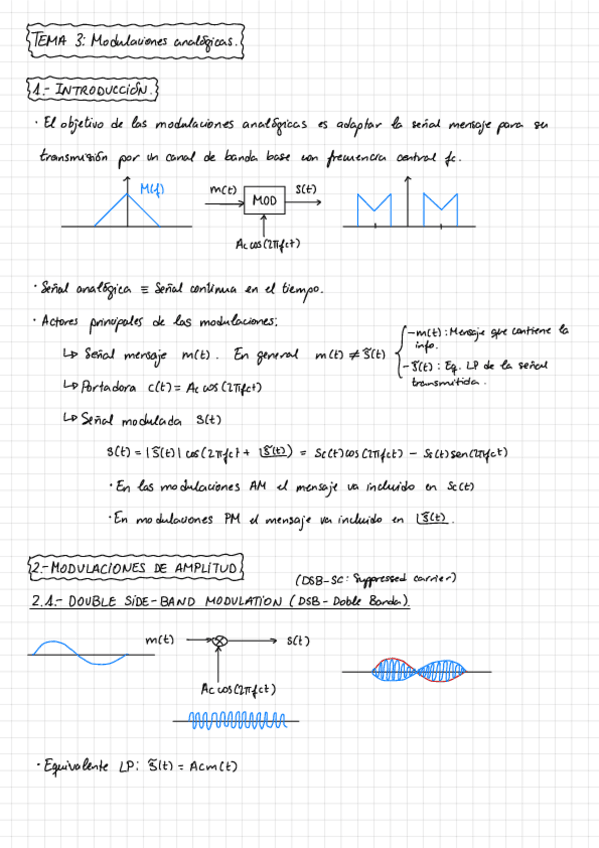 TEMA 3: Modulaciones analógicas.
1.- INTRODUCCIÓN.
· El objetivo de las modulaciones analógicas es adaptar la señal mensaje para su
transmisión por un canal de banda base con frecuencia central fc.
M(f)
m(t) MOD s(t)
Ac cos(2πfct)
· Señal analógica ≡ Señal continua en el tiempo.
· Actores principales de las modulaciones:
↳ Señal mensaje m(t). En general m(t) ≠ s̃(t)
- m(t): Mensaje que contiene la
info.
- s̃(t): Eq. LP de la señal
transmitida.
↳ Portadora c(t) = Ac cos(2πfct)
↳ Señal modulada s(t)
s(t) = |s̃(t)| cos(2πfct + ∠s̃(t)) = Sc(t)cos(2πfct) - Ss(t)sen(2πfct)
· En las modulaciones AM el mensaje va incluido en Sc(t)
· En modulaciones PM el mensaje va incluido en ∠s̃(t).
2.- MODULACIONES DE AMPLITUD
(DSB-SC: Suppressed carrier)
2.1.- DOUBLE SIDE-BAND MODULATION (DSB - Doble Banda)
m(t) s(t)
Ac cos(2πfct)
· Equivalente LP: s̃(t) = Acm(t)